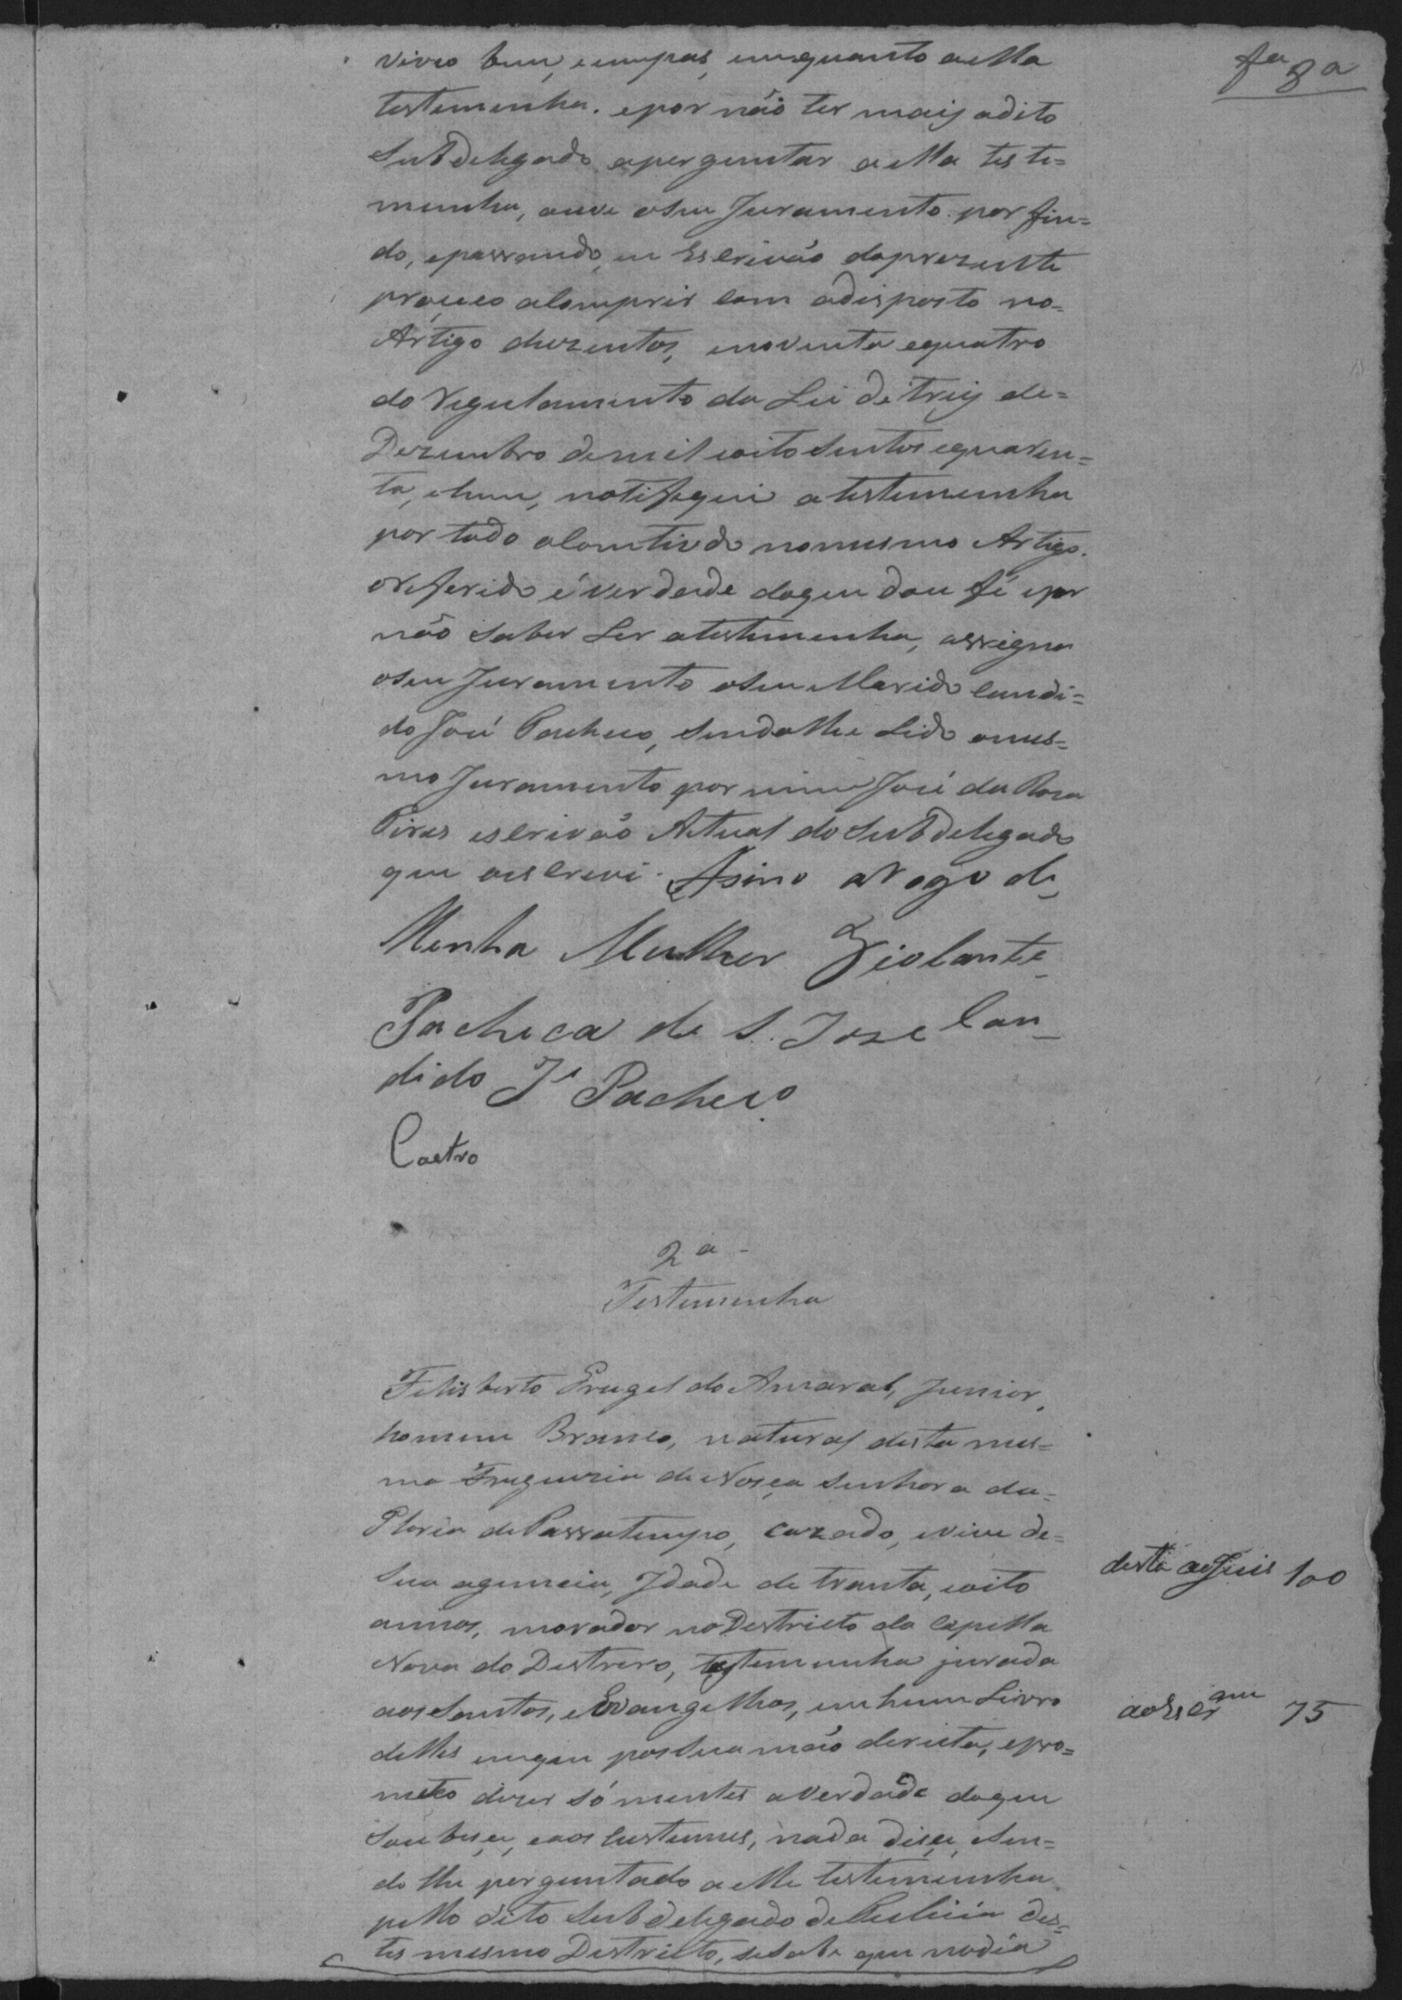 fa 8a
viveo bem, eempas, emquanto aella
testemunha. epor não ter mais odito
Subdelegado aperguntar aella teste=
munha, ouve oseu Juramento por fin=
do, epassando, eu Escrivão doprezente
proçeco acomprir com odisposto no=
Artigo duzentos, enoventa equatro
do Regulamento da Lei de treis de=
Dezembro demil eoito sentos equaren=
ta, ehum, notifiquei atestemunha
por todo ocontiudo nomesmo Artigo.
oreferido é verdade doque dou fé epor
não saber Ler atestemunha, assigna
oseu Juramento oseu Marido Candi=
do José Pacheco, sendolhe Lido omes=
mo Juramento por mim José da Roza
Pires escrivão Actual do Subdelegado
que oescrevi. Asino aRogo de
Minha Mulher Violante
Pacheca de S. Joze Can_
dido Je Pacheco
Castro
2a
Testemunha
Felisberto Gugel do Amaral, Junior,
homem Branco, natural desta mes=
ma Freguezia de Noséa Senhora da=
Gloria de Passatempo, Cazado, evive de=
sua agencia, Idade de trinta, eoito
annos, morador no Destricto da Capella
Nova do Desterro, testemunha jurada
aos Santos, eEvangelhos, em hum Livro
delles emque pos sua mão dereita, epro=
meteo dizer sómentes averdade doque
Soubeçe, eaos custumes, nada dise, Sen=
do lhe perguntado aelle testemunha
pello dito Subdelegado de Pulicia des=
tes mesmo Destricto, sesabe que nodia
desta aoJuis 100
aoEscram 75